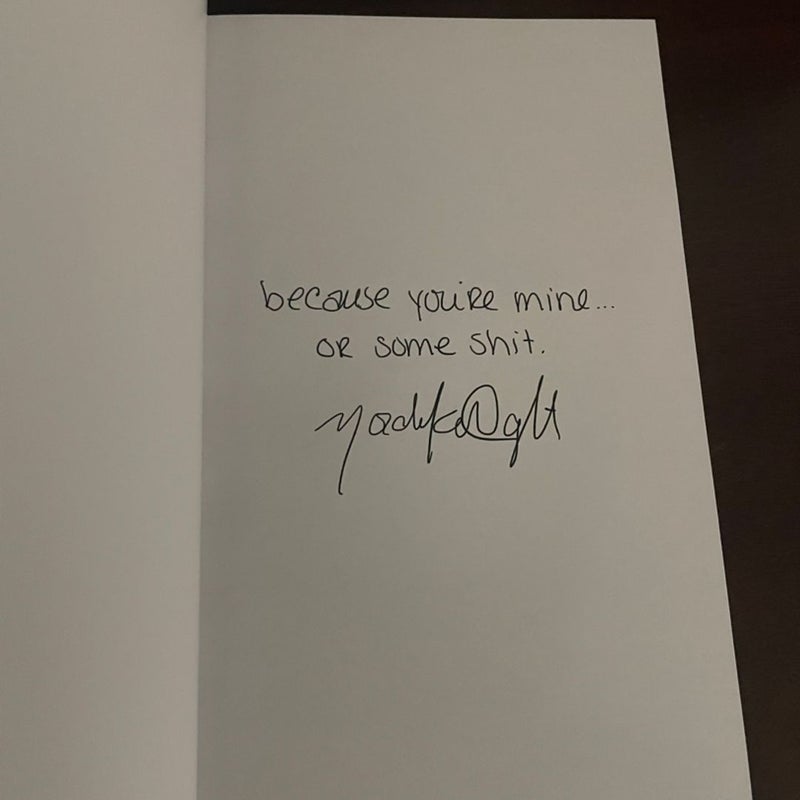 because you're mine...
or some shit.